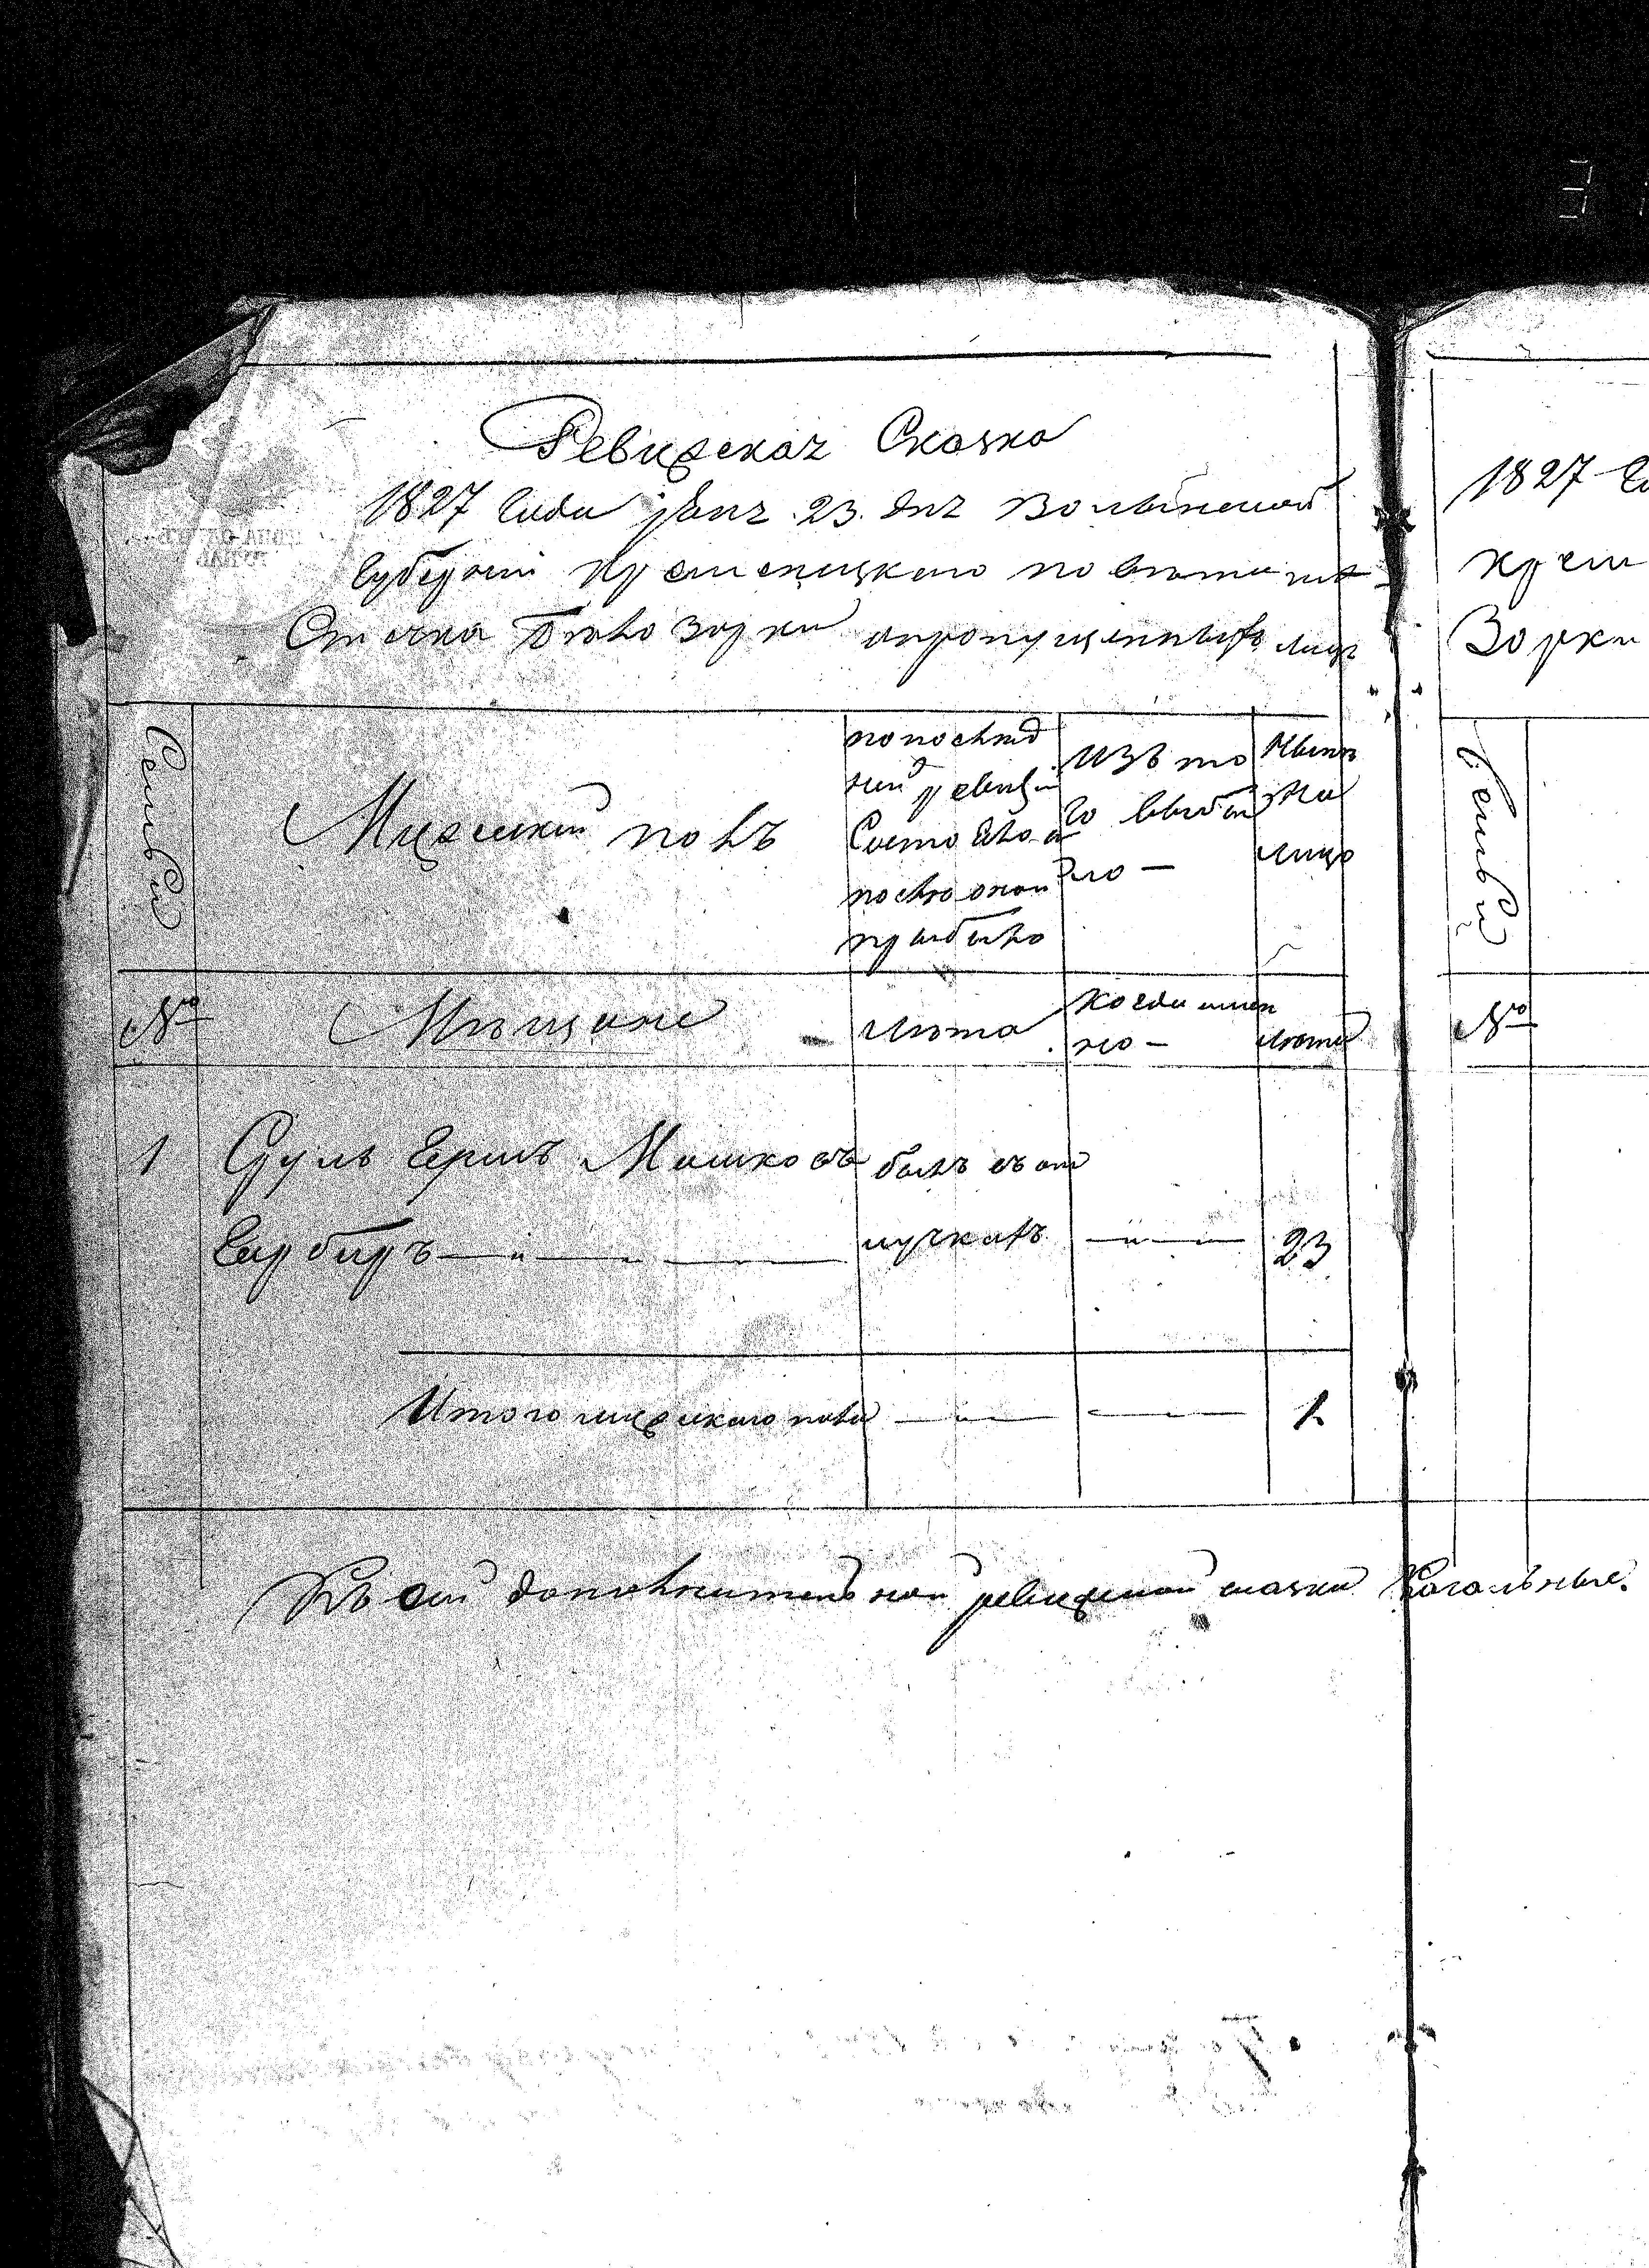 Ревизская Сказка
1827 Года Янв. 23. дня Волынской
Губернии Кременецкаго повета ме-
стечка Белозорки о пропущенныхъ лицъ
Семьи
Мужеский полъ
по послед
ней ревизии
Состояло и
после оной
прибыло
Изъ то
го выбы
ло —
Ныне
на
лицо
№
Мещане
Лета
Когда имен
но —
Лета
1 Сруль Гершъ Мошковъ былъ въ от
Гарберъ лучкахъ 23
Итого мужескаго пола 1
Къ сей дополнительной ревизской сказки Кагальные
1827 Го
Крем
Зорки
Семьи
№